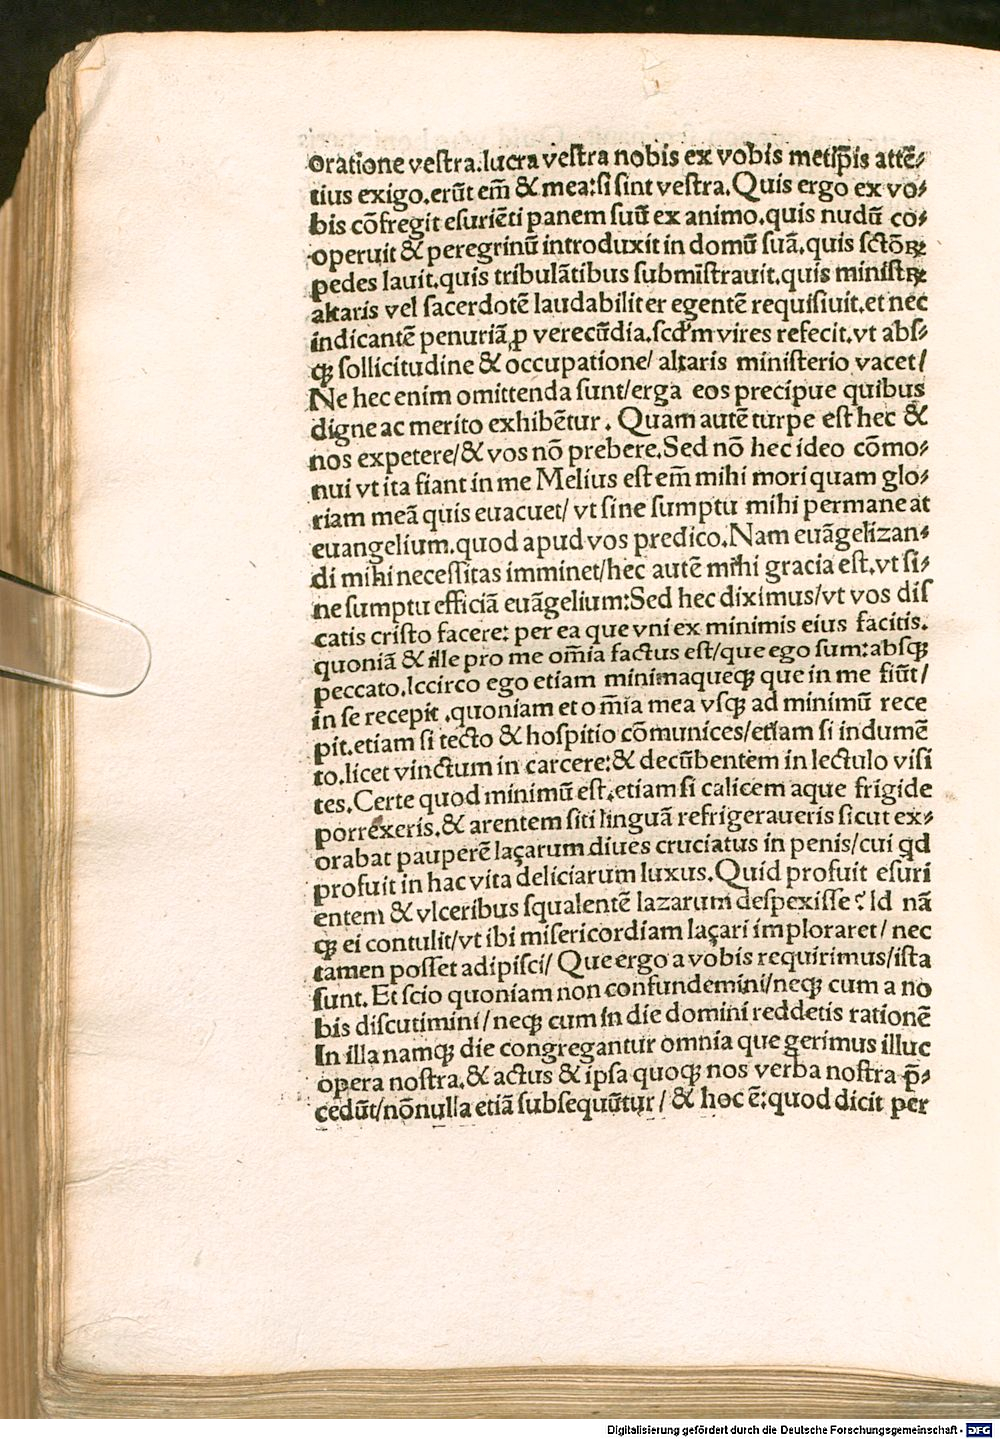 oratione vestra.lucra vestra nobis ex vobis metip̃is attẽ⸗
tius exigo.erũt em̃ & mea:si sint vestra.Quis ergo ex vo⸗
bis cõfregit esuriẽti panem suũ ex animo.quis nudũ co⸗
operuit & peregrinũ introduxit in domũ suã.quis sctõꝝ
pedes lauit.quis tribulãtibus submistrauit.quis ministꝝ
altaris vel sacerdotẽ laudabiliter egentẽ requisiuit.et nec
indicantẽ penuriã,p verecũdia.scd'm vires refecit.vt abs⸗
qꝫ sollicitudine & occupatione/ altaris ministerio vacet/
Ne hec enim omittenda sunt/erga eos precipue quibus
digne ac merito exhibẽtur. Quam autẽ turpe est hec &
nos expetere/& vos nõ prebere.Sed nõ hec ideo cõmo⸗
nui vt ita fiant in me Melius est em̃ mihi mori quam glo⸗
riam meã quis euacuet/ vt sine sumptu mihi permaneat
euangelium.quod apud vos predico.Nam euãgelizan⸗
di mihi necessitas imminet/hec autẽ mihi gracia est.vt si⸗
ne sumptu efficiã euãgelium:Sed hec diximus/vt vos dis
catis cristo facere: per ea que vni ex minimis eius facitis.
quoniã & ille pro me om̃ia factus est/que ego sum:absqꝫ
peccato.Iccirco ego etiam minimaqueqꝫ que in me fiũt/
in se recepit .quoniam et om̃ia mea vsqꝫ ad minimũ rece
pit.etiam si tecto & hospitio cõmunices/etiam si indumẽ
to.licet vinctum in carcere:& decũbentem in lectulo visi
tes.Certe quod minimũ est.etiam si calicem aque frigide
porrexeris.& arentem siti linguã refrigeraueris sicut ex⸗
orabat pauperẽ laçarum diues cruciatus in penis/cui qd
profuit in hac vita deliciarum luxus.Quid profuit esuri
entem & vlceribus squalentẽ lazarum despexisse? Id nã
qꝫ ei contulit/vt ibi misericordiam laçari imploraret/ nec
tamen posset adipisci/ Que ergo a vobis requirimus/ista
sunt. Et scio quoniam non confundemini/neqꝫ cum a no
bis discutimini/neqꝫ cum in die domini reddetis rationẽ
In illa namqꝫ die congregantur omnia que gerimus illuc
opera nostra.& actus & ipsa quoqꝫ nos verba nostra p̃⸗
cedũt/nõnulla etiã subsequũtur/ & hoc ẽ:quod dicit per
Digitalisierung gefördert durch die Deutsche Forschungsgemeinschaft - DFG